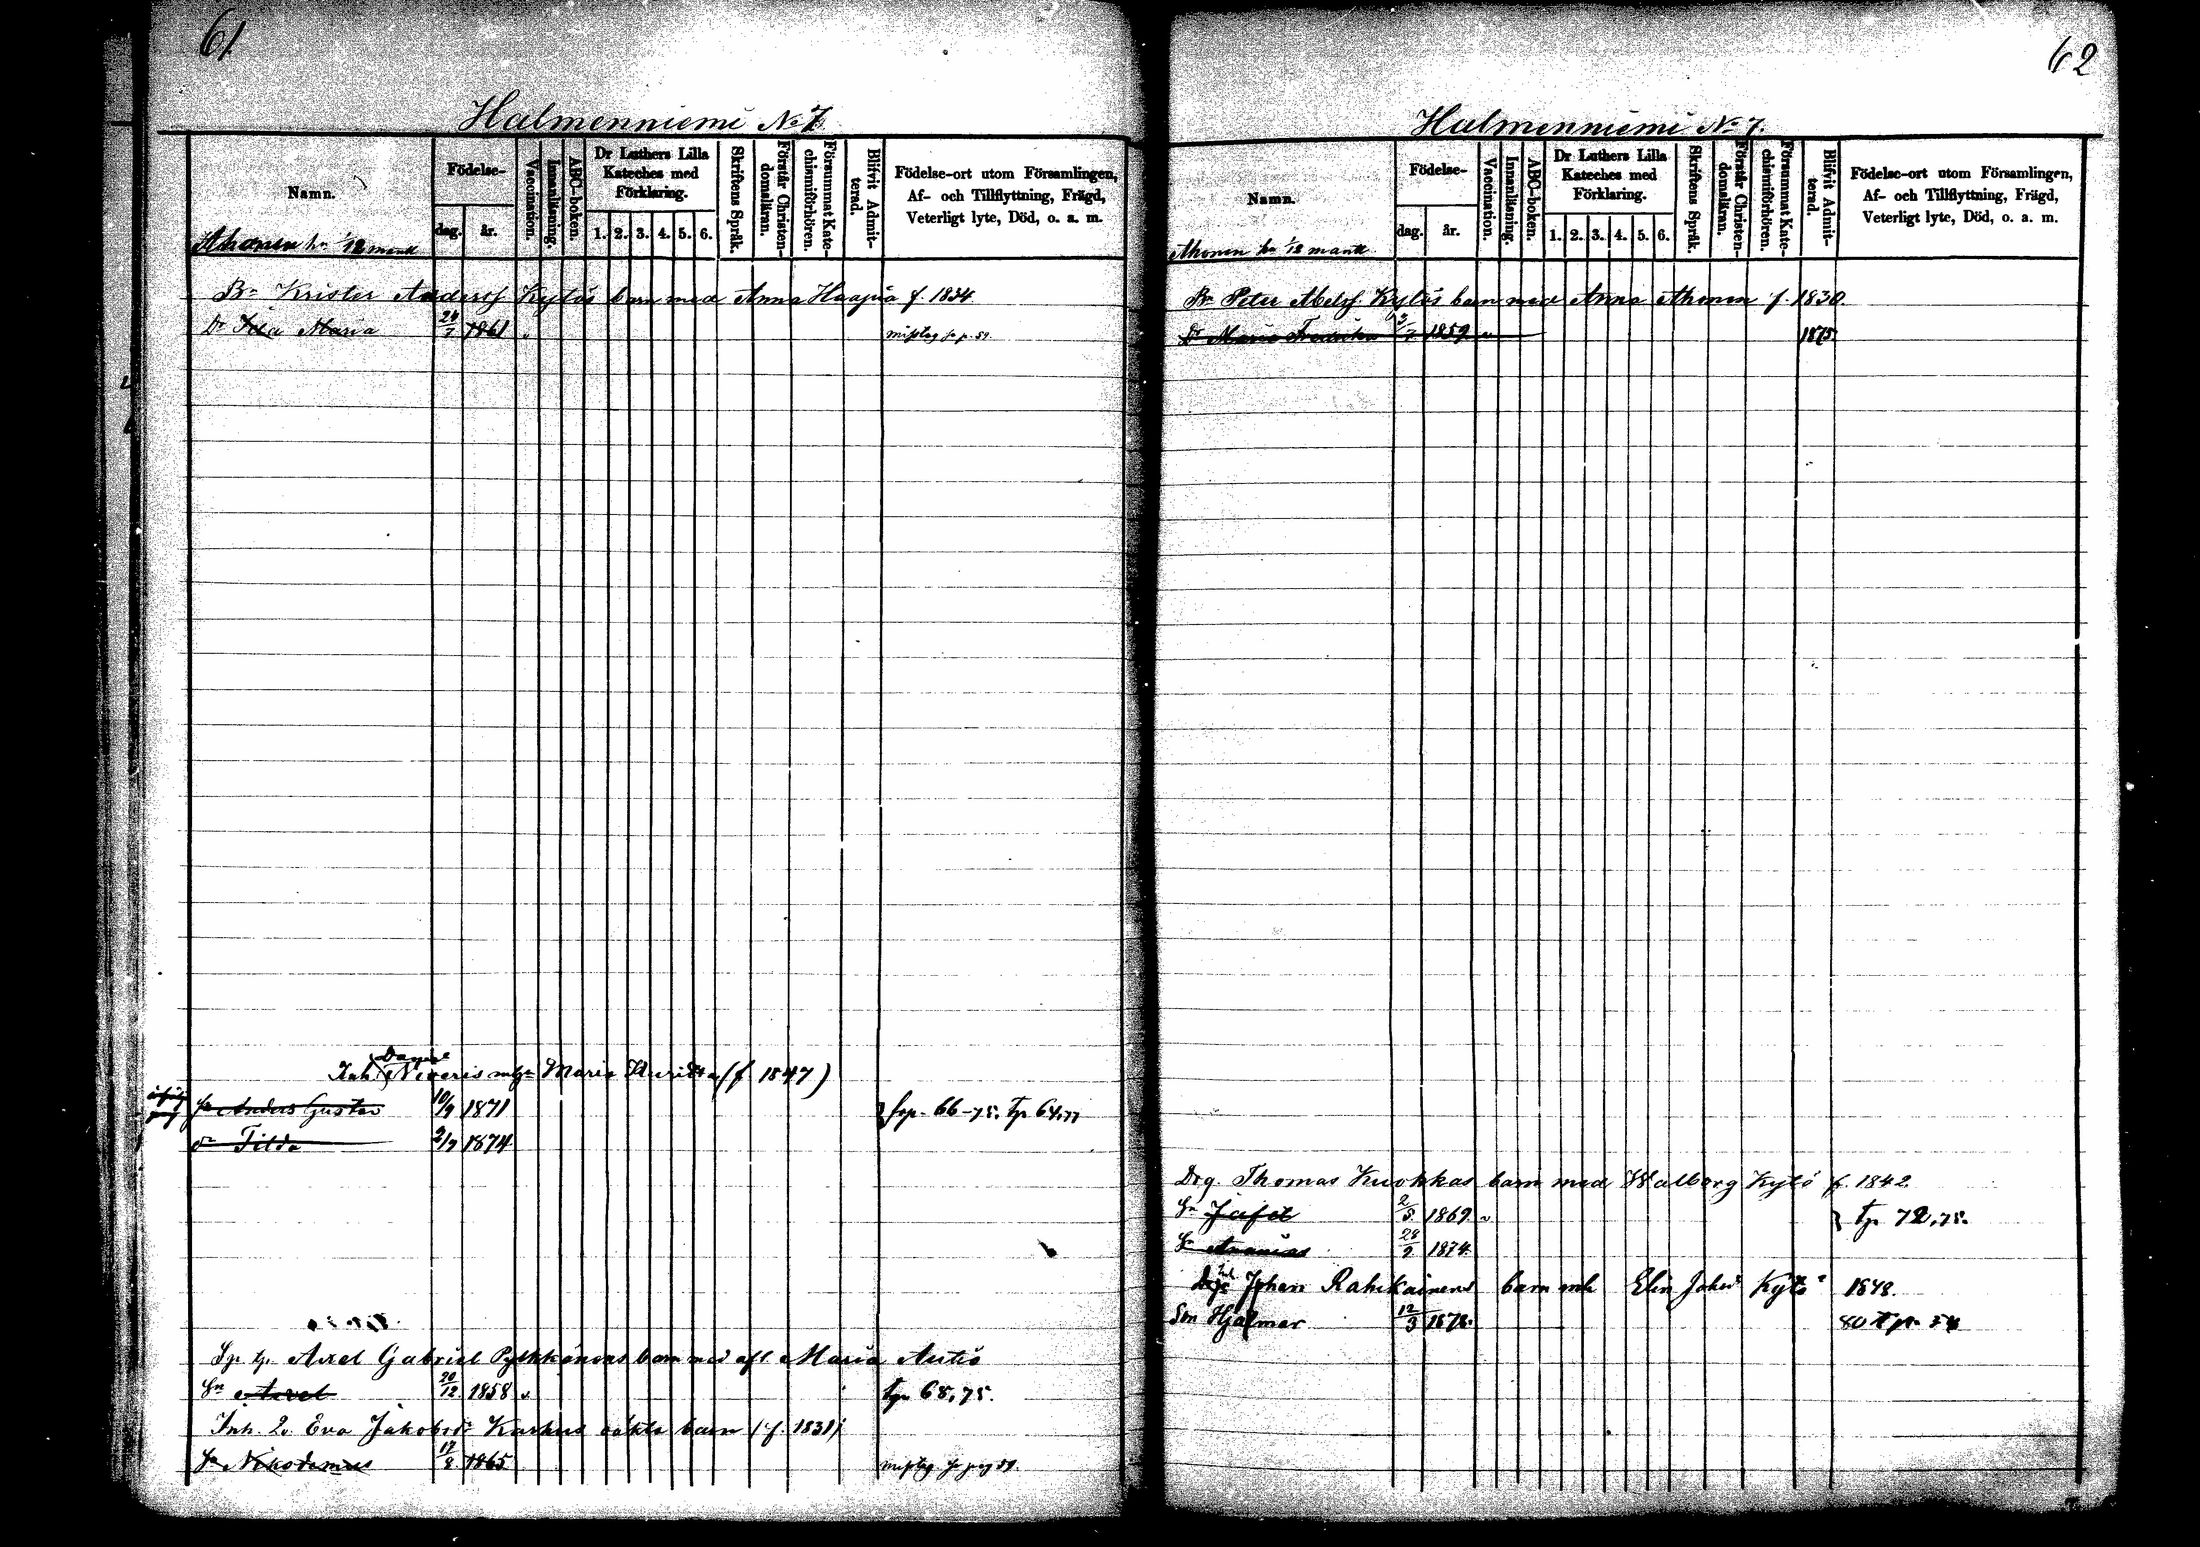 61
Halmenniemi No 7
Namn.
Födelse-
dag.
år.
Vaccination.
Innanläsning.
ABC-boken.
Dr Luthers Lilla
Kateches med
Förklaring.
1. 2. 3. 4. 5. 6.
Skriftens Språk.
Förstår Christen-
domsläran.
Försummat Kate-
chismiförhören.
Blifvit Admit-
terad.
Födelse-ort utom Församlingen,
Af- och Tillflyttning, Frägd,
Veterligt lyte, Död, o. a. m.
Ahonen hn 1/12 mantl
Bn Krister Andersf Kylös barn med Anna Haapia f. 1834
Dr Ida Maria 24/7 1861 misstag se p. 59.
Inh. Daniel Siveris m hu Maria (f 1847)
Sn Anders Gustav 10/9 1871 66-75. tp 64,77
Dr Tilda 2/7 1874
Axel Gabriel Pylkkönens barn med afl. Maria Autio
Sn Axel 20/12 1858 tp 68,75.
Inh. Eva Jakobsdr Karhus oäkta barn (f. 1831)
Sn Nikodemus 17/8 1865 misstag se pag 59.
62
Halmenniemi No 7.
Namn.
Födelse-
dag.
år.
Vaccination.
Innanläsning.
ABC-boken.
Dr Luthers Lilla
Kateches med
Förklaring.
1. 2. 3. 4. 5. 6.
Skriftens Språk.
Förstår Christen-
domsläran.
Försummat Kate-
chismiförhören.
Blifvit Admit-
terad.
Födelse-ort utom Församlingen,
Af- och Tillflyttning, Frägd,
Veterligt lyte, Död, o. a. m.
Ahonen hn 1/12 mantl
Bn Peter Abelsf. Kylös barn med Anna Ahonen f. 1830
Dr Maria Fredrika 1859 1875
Drg. Thomas Kuokkas barn med Walborg Kylö f. 1842
Sn Jafet 2/5 1869 tp 72,75.
Sn Ananias 28/9 1874
Johan Rahikainens barn mh Elin Johsdr Kylö 1848.
Son Hjalmar 12/3 1878. 80 tp